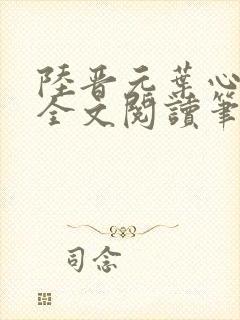 陸晋元葉心
全文閱讀筆
司念